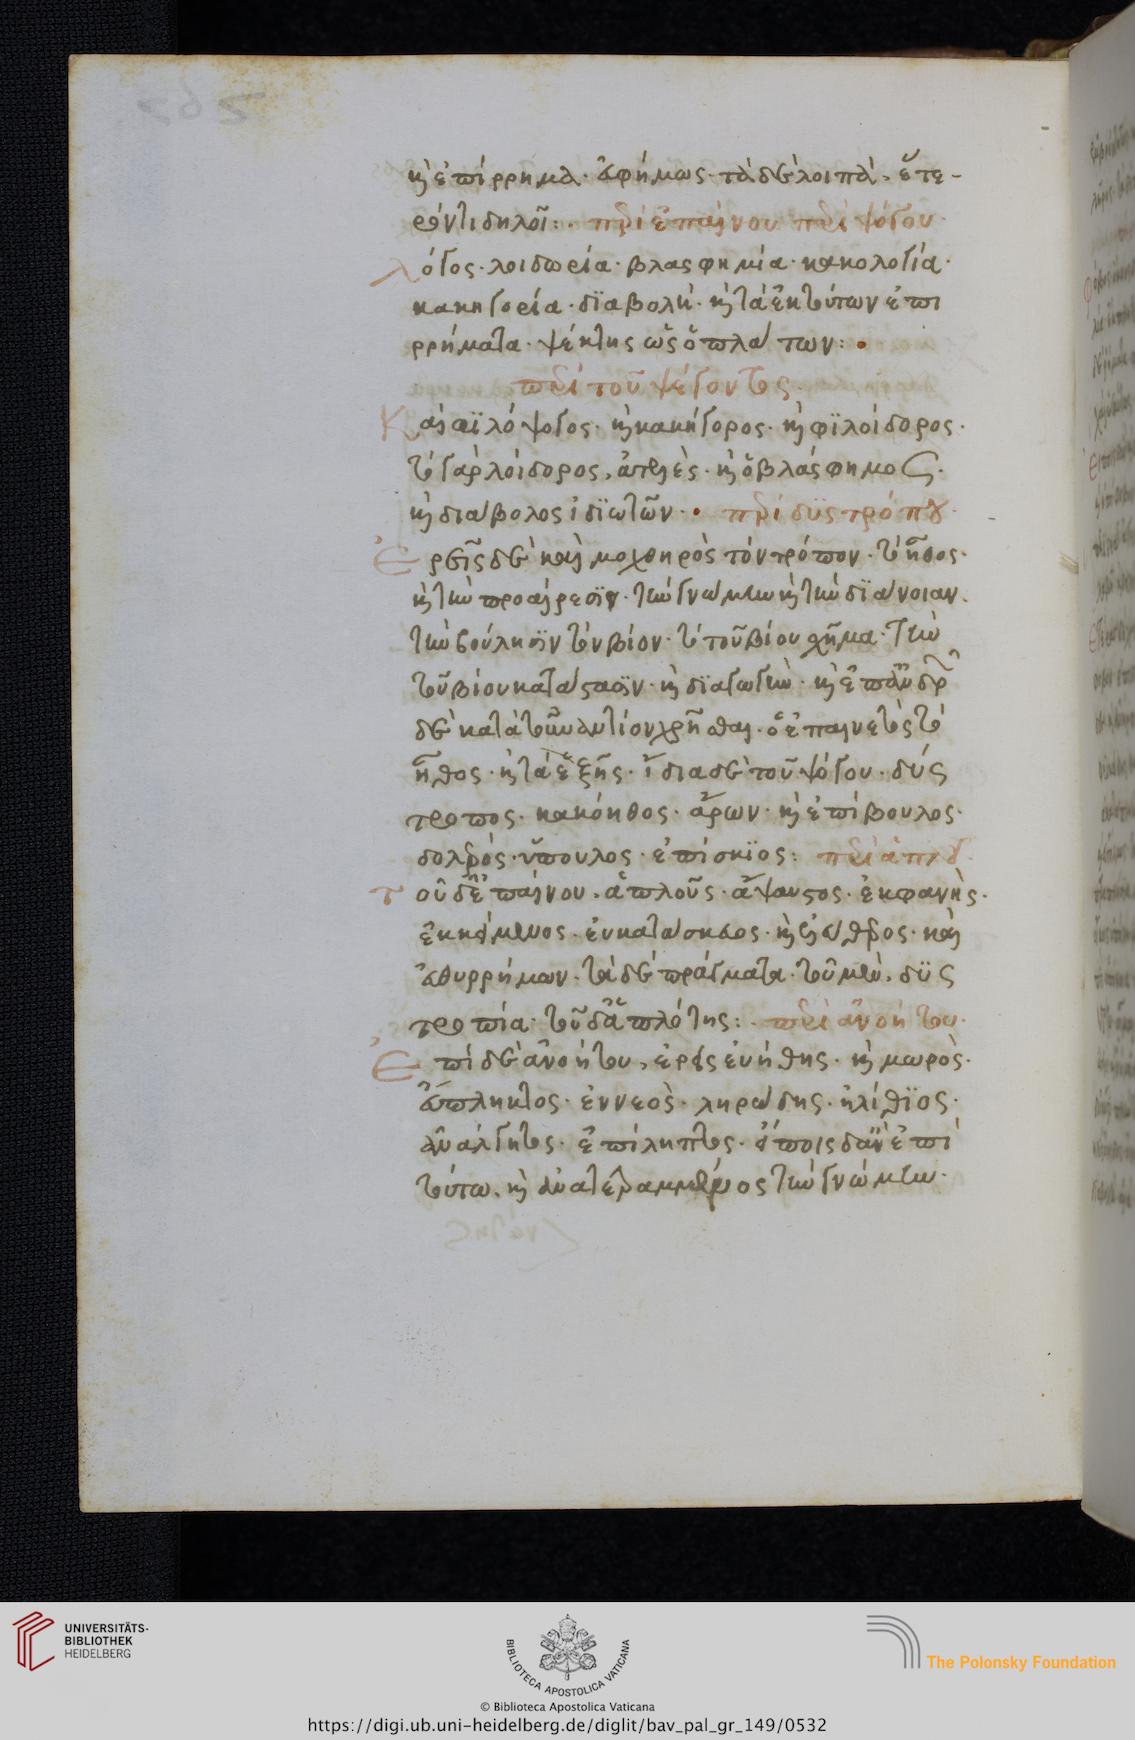 καὶ ἐπίρρημα· εὐφήμως· τὰ δὲ λοιπὰ, ἕτε-
ρόν τι δηλοῖ: περὶ ἐπαίνου περὶ ψόγου
λόγος· λοιδωρία· βλασφημία· κακολογία·
κακηγορία· δϊαβολή· καὶ τὰ ἐκ τούτων ἐπι
ρρήματα· ψέκτης
περὶ τοῦ ψέγοντος
Καὶ φιλόψογος· καὶ κακήγορος· καὶ φϊλοίδορος·
τὸ γὰρ λοίδορος, · καὶ ὁ βλάσφημος·
καὶ διάβολος ἰδϊωτῶν· περὶ δϋστρόπου
Ἐρεῖς δὲ καὶ μοχθηρὸς τὸν τρόπον· τὸ ἦθος·
καὶ τὴν προαίρεσϊν· τὴν γνώμην καὶ τὴν δϊάνοιαν·
τὴν βούλησϊν τὸν βίον· τὸ τοῦ βίου σχῆμα· τὴν
τοῦ βίου κατάστασϊν· καὶ δϊαγωγὴν· καὶ ἐπ' ἀνδρ
δὲ κατὰ τοὐναντίον χρῆσθαι· ὁ ἐπαινετὸς τὸ
ἦθος· καὶ τὰ ἑξῆς· ἴδια δὲ τοῦ ψόγου· δύς
τροπος· κακόηθος· εἴρων· καὶ ἐπίβουλος·
δολερός· ὕπουλος· ἐπίσκϊος: περὶ ἁπλοῦ
τοῦ δὲ ἐπαίνου, ἁπλοῦς· ἄψαυστος· ἐκφανὴς·
ἐκκείμενος· εὐκατάσκεος· καὶ ἐλεύθερος· καὶ
ἐυθυρρήμων· τὰ δὲ πράγματα· τοῦ μὲν, δϋς
τροπία· τοῦ δὲ ἁπλότης: περὶ ἀνοήτου
Ἐπὶ δὲ ἀνοήτου, ἐρεῖς ἐυήθης· καὶ μωρὸς·
ἀπόπληκτος· ἐννεὸς· ληρώδης· ἠλίθϊος·
ἀνάλγητος· ἐπίληπτος· εἴποις δ' ἂν ἐπὶ
τούτω, καὶ τὴν γνώμην·
UNIVERSITÄTS-
BIBLIOTHEK
HEIDELBERG
BIBLIOTECA APOSTOLICA VATICANA
The Polonsky Foundation
© Biblioteca Apostolica Vaticana
https://digi.ub.uni-heidelberg.de/diglit/bav_pal_gr_149/0532